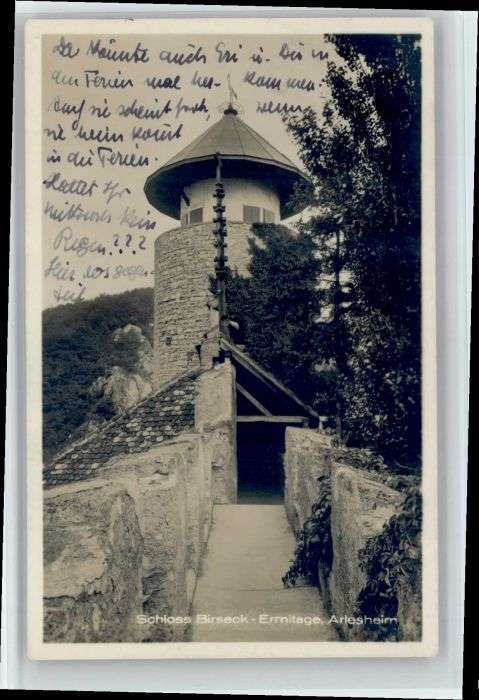 Da könnte auch Eri u. Du in
den Ferien mal her- kommen.
sie scheint froh, wenn
sie heim kommt
in die Ferien.
Hattet Ihr
Mittwochs kein
Regen???
Hier das
teil
Schloss Birseck - Ermitage, Arlesheim